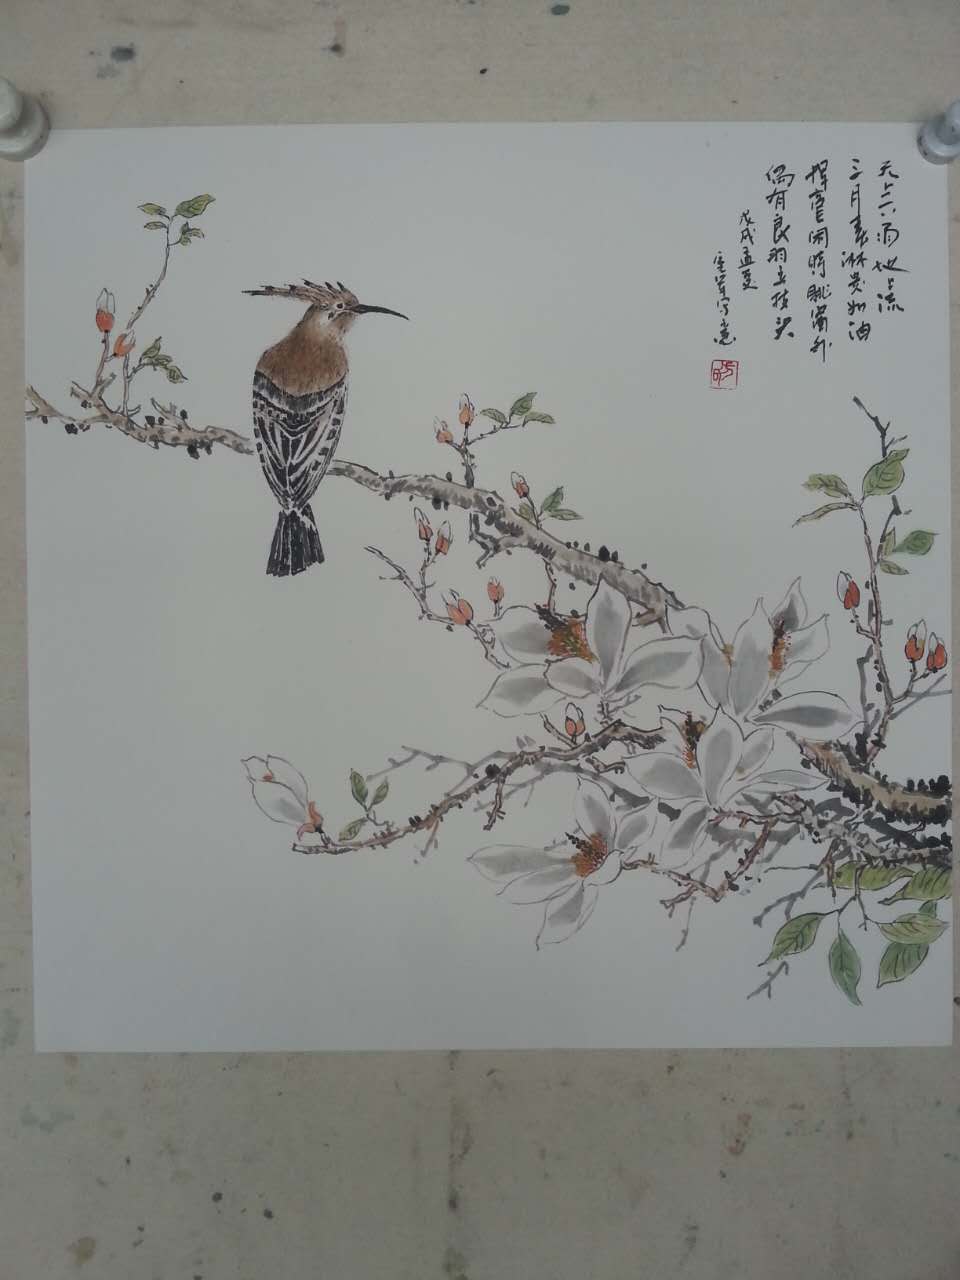 天上下雨地上流
三月春淋贵如油
挥闲时眺窗外
偶有良羽立枝头
戊戌孟夏
写意